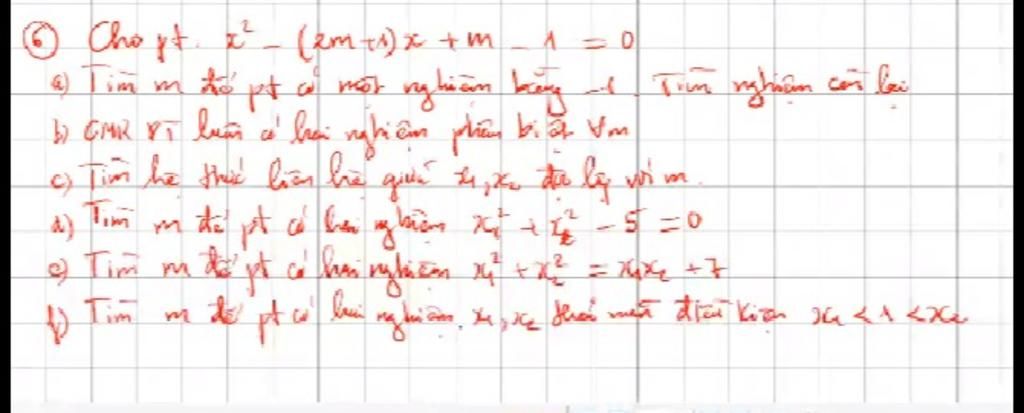 ⑥ Cho pt. x² - (2m+1)x + m - 1 = 0
a) Tìm m để pt có một nghiệm bằng -1. Tìm nghiệm còn lại
b) CMR PT luôn có hai nghiệm phân biệt ∀m
c) Tìm hệ thức liên hệ giữa x₁, x₂ độc lập với m.
d) Tìm m để pt có hai nghiệm x₁² + x₂² - 5 = 0
e) Tìm m để pt có hai nghiệm x₁² + x₂² = x₁x₂ + 7
f) Tìm m để pt có hai nghiệm x₁, x₂ thoả mãn điều kiện x₁ < 1 < x₂